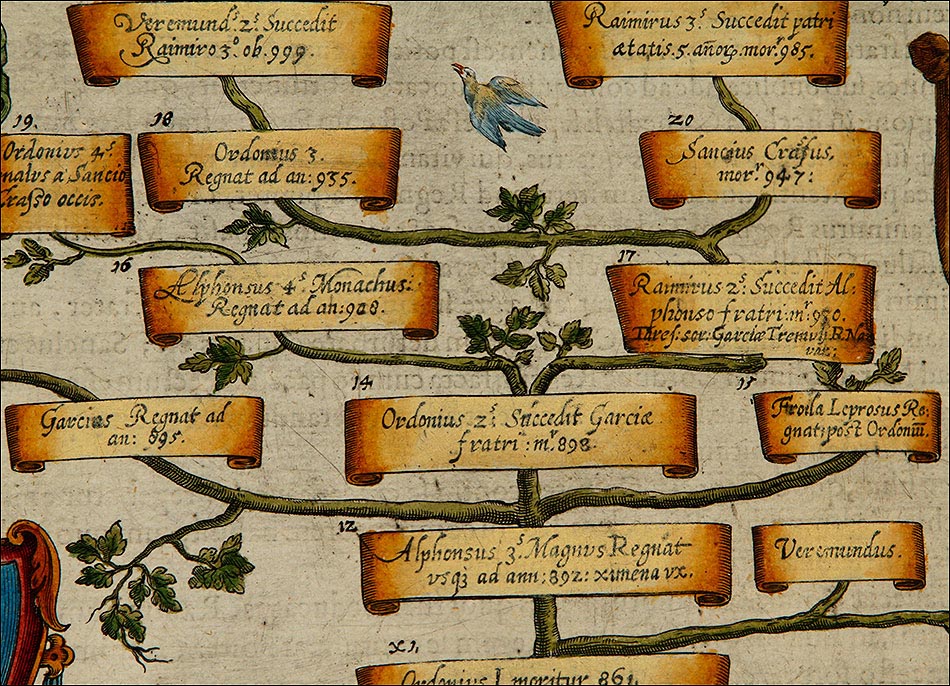 Veremund⁹. 2⁹. Succedit
Raimiro 3⁹. ob. 999.
Raimirus 3⁹. Succedit patri
ætatis. 5. añorꝝ. mor.ʳ 985.
19.
Ordonius 4⁹.
malus a Sancio
Crasso occis.
18
Ordonius 3.
Regnat ad an: 935.
20
Sancius Crassus.
mor.ʳ 947:
16
Alphonsus 4⁹. Monachus:
Regnat ad an: 928.
17
Raimirus 2⁹. Succedit Al-
phonso fratri: m.ʳ 930.
sor: Garciæ R. Na
var:
Garcias Regnat ad
an: 895.
14
Ordonius 2⁹. Succedit Garciæ
fratri: m.ʳ 898.
15
Froila Leprosus Re-
gnat post Ordoniū.
12
Alphonsus 3⁹. Magnus Regnat
usqȝ ad ann: 892: ximena ux.
Veremundus.
XI.
Ordonius I moritur 861.